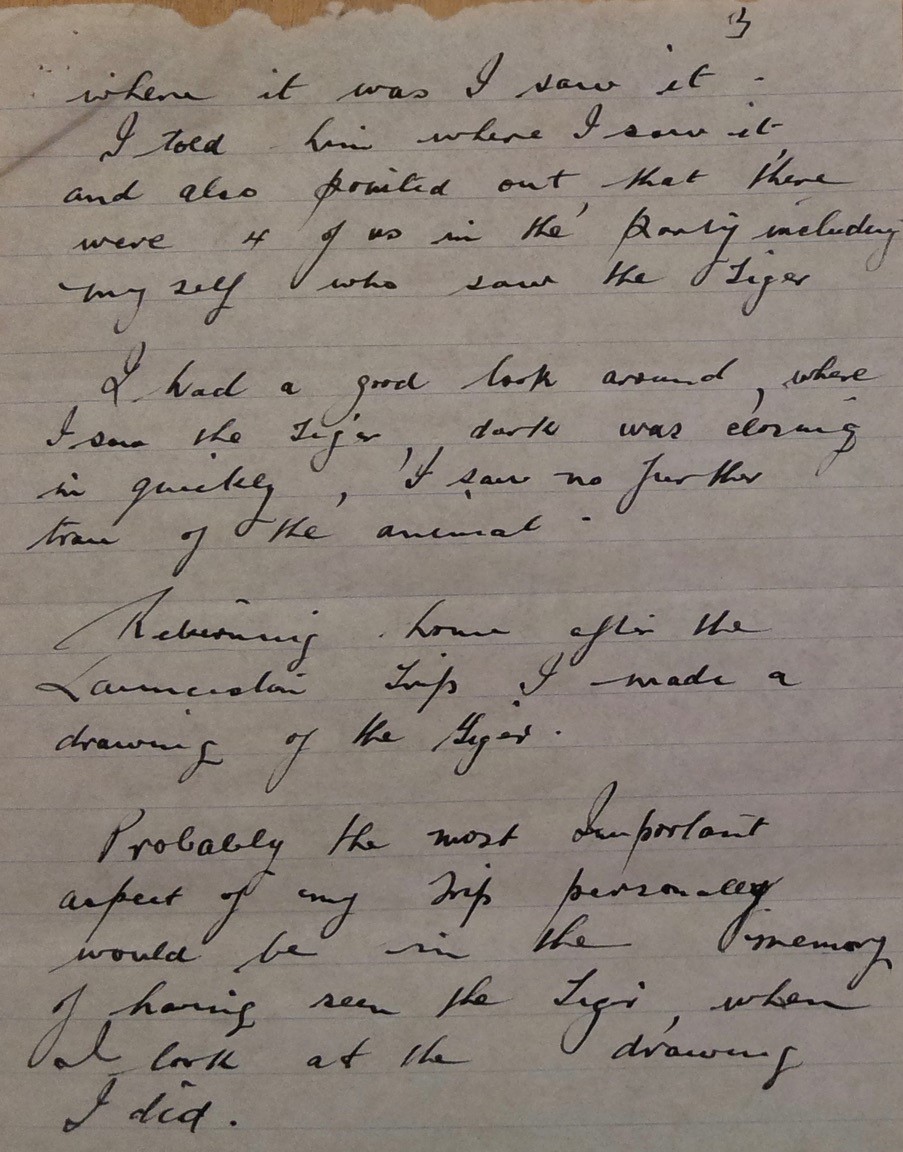 3
where it was I saw it -
I told him where I saw it,
and also pointed out, that there
were 4 of us in the party including
my self who saw the Tiger
I had a good look around, where
I saw the Tiger, dark was closing
in quickly, I saw no further
trace of the animal -
Returning home after the
Launceston Trip I made a
drawing of the Tiger.
Probably the most Important
aspect of my Trip personally
would be in the memory
of having seen the Tiger, when
I look at the drawing
I did.